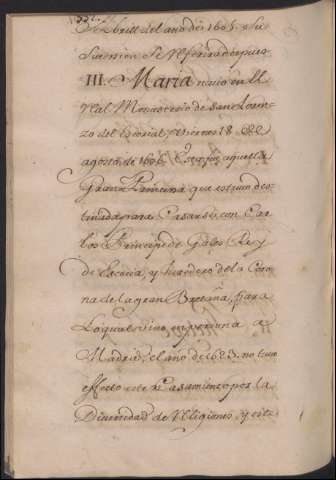 de Abrill del año de 1605. Su
Sucesion se referirà despues
III. Maria nacio en el
real Monasterio de san Loren-
zo del escorial, viernes 18. de
agosto de 1606. Esta fue aquella
Grand Princesa que estubo des-
tinada para Casarse con Car-
los Principe de Gales, Rey
de Escocia, y heredero de la Coro-
na de la gran Bretaña, para
Lo qual vino en persona a
Madrid, el año de 1623. no tuvo
effeto este casamiento por la
Diversidad de Religiones, y este